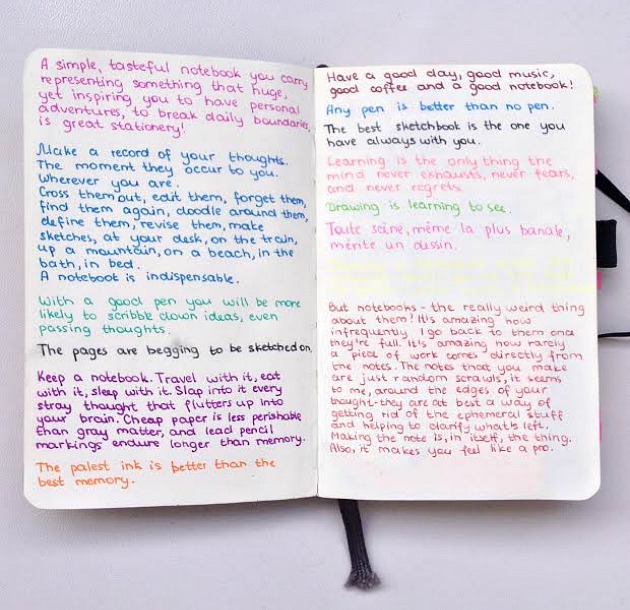 A simple, tasteful notebook you carry
representing something that huge,
yet inspiring you to have personal
adventures, to break daily boundaries,
is great stationery!
Make a record of your thoughts.
The moment they occur to you.
Wherever you are.
Cross them out, edit them, forget them,
find them again, doodle around them,
define them, revise them, make
sketches, at your desk, on the train,
up a mountain, on a beach, in the
bath, in bed.
A notebook is indispensable.
With a good pen you will be more
likely to scribble down ideas, even
passing thoughts.
The pages are begging to be sketched on.
Keep a notebook. Travel with it, eat
with it, sleep with it. Slap into it every
stray thought that flutters up into
your brain. Cheap paper is less perishable
than gray matter, and lead pencil
markings endure longer than memory.
The palest ink is better than the
best memory.
Have a good day, good music,
good coffee and a good notebook!
Any pen is better than no pen.
The best sketchbook is the one you
have always with you.
Learning is the only thing the
mind never exhausts, never fears,
and never regrets.
Drawing is learning to see.
Toute scène, même la plus banale,
mérite un dessin.
But notebooks - the really weird thing
about them! It's amazing how
infrequently I go back to them once
they're full. It's amazing how rarely
a piece of work comes directly from
the notes. The notes that you make
are just random scrawls, it seems
to me, around the edges of your
thought-they are at best a way of
getting rid of the ephemeral stuff
and helping to clarify what's left.
Making the note is, in itself, the thing.
Also, it makes you feel like a pro.